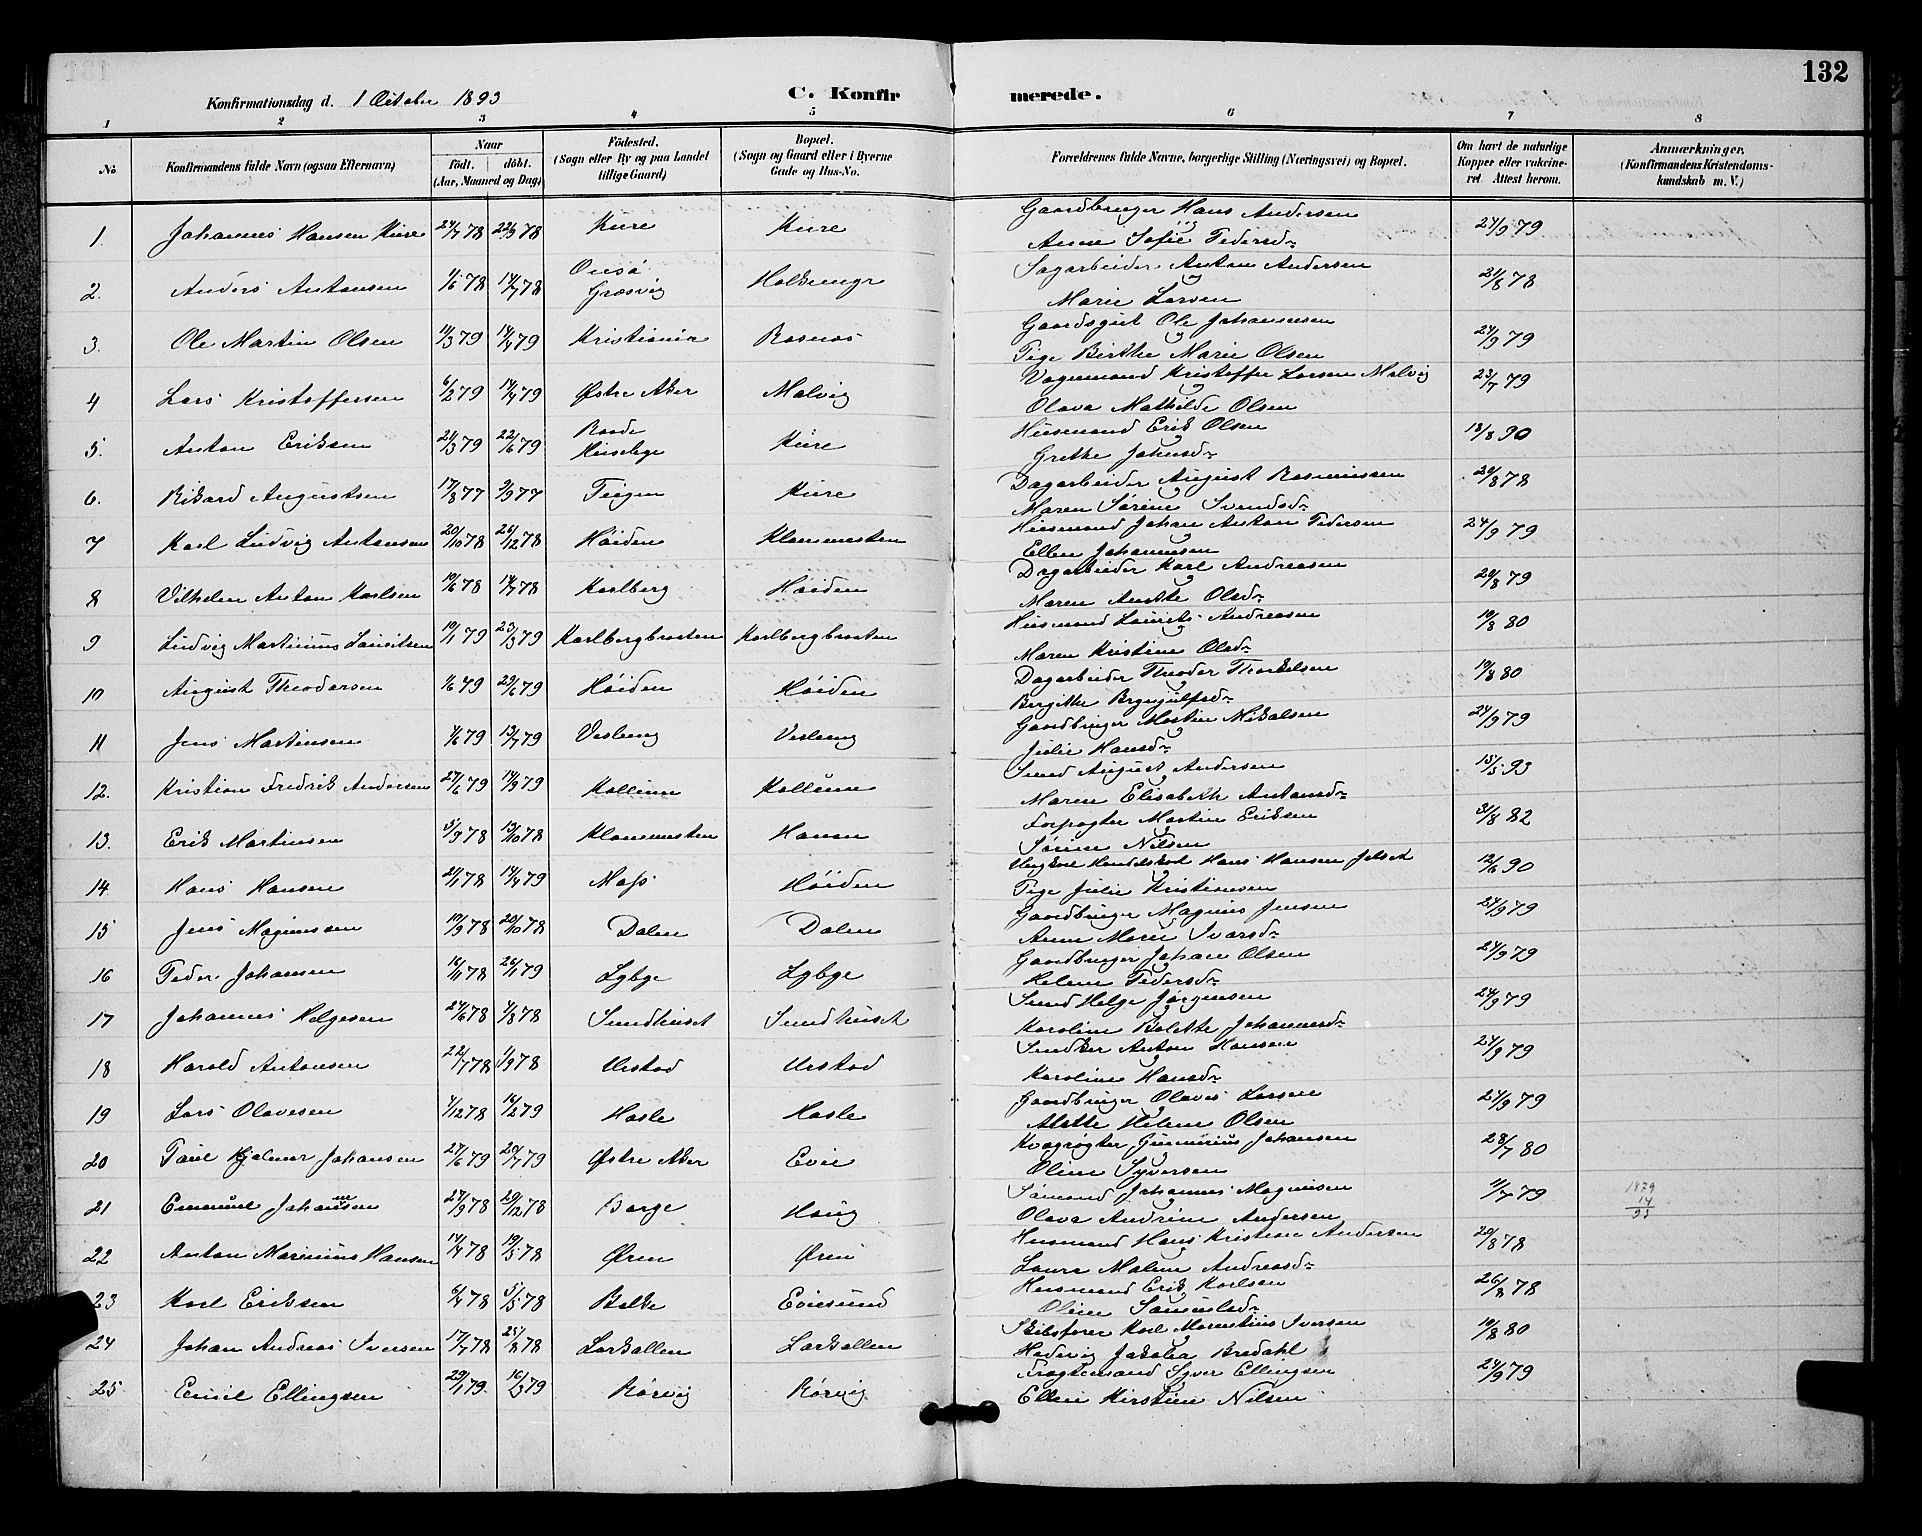 132
Konfirmationsdag d. 1 October 1893
C. Konfirmerede.
1 2 3 4 5 6 7 8
No
Konfirmandens fulde Navn (ogsaa Efternavn)
Naar
födt. döbt.
(Aar, Maaned og Dag)
Födested.
(Sogn eller By og paa Landet
tillige Gaard)
Bopæl.
(Sogn og Gaard eller i Byerne
Gade og Hus-No.
Forældrenes fulde Navne, borgerlige Stilling (Næringsvei) og Bopæl.
Om havt de naturlige
Kopper eller vakcine-
ret Attest herom.
Anmærkninger.
(Konfirmandens Kristendoms-
kundskab m. V.)
1. Johannes Hansen Kure 24/7 78 22/9 78 Kure Kure Gaardbruger Hans Andersen 24/9 79
Anne Sofie Pedersdr
2. Anders Antonsen 1/6 78 14/7 78 Onsö Græsvig Sagarbeider Anton Andersen 21/8 78
Marie Larsen
3. Ole Martin Olsen 11/3 79 14/4 79 Kristiania Rosnæs Gaardsgut Ole Johannesen 24/9 79
Pige Birthe Marie Olsen
4 Lars Kristoffersen 6/2 79 14/4 79 Østre Aker Malvig Vognmand Kristoffer Larsen Malvig 23/7 79
Olava Mathilde Olsen
5. Anton Eriksen 21/3 79 22/6 79 Raade Kure Husmand Erik Olsen 18/8 90
Grethe Johnsdr
6. Rikard Augustsen 17/8 77 9/9 77 Tiegen Kure Dagarbeider August Rasmussen 30/8 78
Maren Sörine Svendsdr
7 Karl Ludvig Antonsen 20/10 78 26/12 78 Höiden Klommesten Husmand Johan Anton Pedersen 24/9 79
Ellen Johannesen
8 Vilhelm Anton Karlsen 10/6 78 14/7 78 Karlberg Höiden Dagarbeider Karl Andreasen 20/8 79
Maren Anette Olsdr
9 Ludvig Martinius Lauritsen 10/1 79 23/3 79 Karlbergbraaten Karlbergbraaten Husmand Laurits Andreasen 19/8 80
Maren Kristine Olsdr
10 August Theodorsen 1/6 79 29/6 79 Höiden Höiden Dagarbeider Theodor Thorkelsen 19/8 80
Birgithe Brynjulfsdr
11 Jens Martinsen 1/6 79 13/7 79 Vesleng Vesleng Gaardbruger Martin Nikolsen 24/9 79
Julie Hansdr
12. Kristian Fredrik Andersen 27/6 79 14/9 79 Kollum Kollum Smed August Andersen 15/5 93
Maren Elisabeth Antonsdr
13. Erik Martinsen 5/9 78 13/10 78 Klommesten Forpagter Martin Eriksen 31/8 82
Sörine Nilsen
14 Hans Hansen 21/1 78 14/4 79 Moss Höiden Ungkarl Handelskarl Hans Hansen 12/6 90
Pige Julie Kristiansen
15 Jens Magnussen 10/9 78 20/10 78 Dalen Dalen Gaardbruger Magnus Jensen 24/9 79
Anne Marie Ivarsdr
16 Peder Johansen 16/11 78 26/1 79 Lybye Lybye Gaardbruger Johan Olsen 24/9 79
Helene Pedersdr
17 Johannes Helgesen 24/6 78 4/8 78 Sundhuset Sundhuset Smed Helge Jörgensen 24/9 79
Karoline Bolette Johannesdr
18 Harald Antonsen 22/7 78 1/9 78 Urstad Urstad Snedker Anton Hansen 24/9 79
Karoline Hansdr
19 Lars Olavesen 4/12 78 16/2 79 Hasle Hasle Gaardbruger Olaves Larsen 24/9 79
Alette Helene Olsen
20 Paul Hjalmar Johansen 27/6 79 20/7 79 Østre Aker Evie Kvægrögter Gunerius Johansen 28/7 80
Oline Syversen
21 Emanuel Johannesen 24/9 78 29/12 78 Borge Houg Sömand Johannes Magnussen 11/7 79
Olava Andrine Andersen
1879
14
93
22 Anton Marinius Hansen 14/4 78 19/5 78 Øren Øren Husmand Hans Kristian Andersen 20/8 78
Laura Maline Andreasdr
23 Karl Eriksen 6/4 78 5/5 78 Balke Eviesund Husmand Erik Karlsen 26/8 78
Oline Samuelsdr
24 Johan Andreas Iversen 17/7 78 25/8 78 Larkollen Larkollen Skibsförer Karl Marentius Iversen 19/8 80
Hedevig Jakobea Bredahl
25 Emil Ellingsen 29/1 79 16/3 79 Rörvig Rörvig Fragtemand Syver Ellingsen 24/9 79
Ellen Kirstine Nilsen